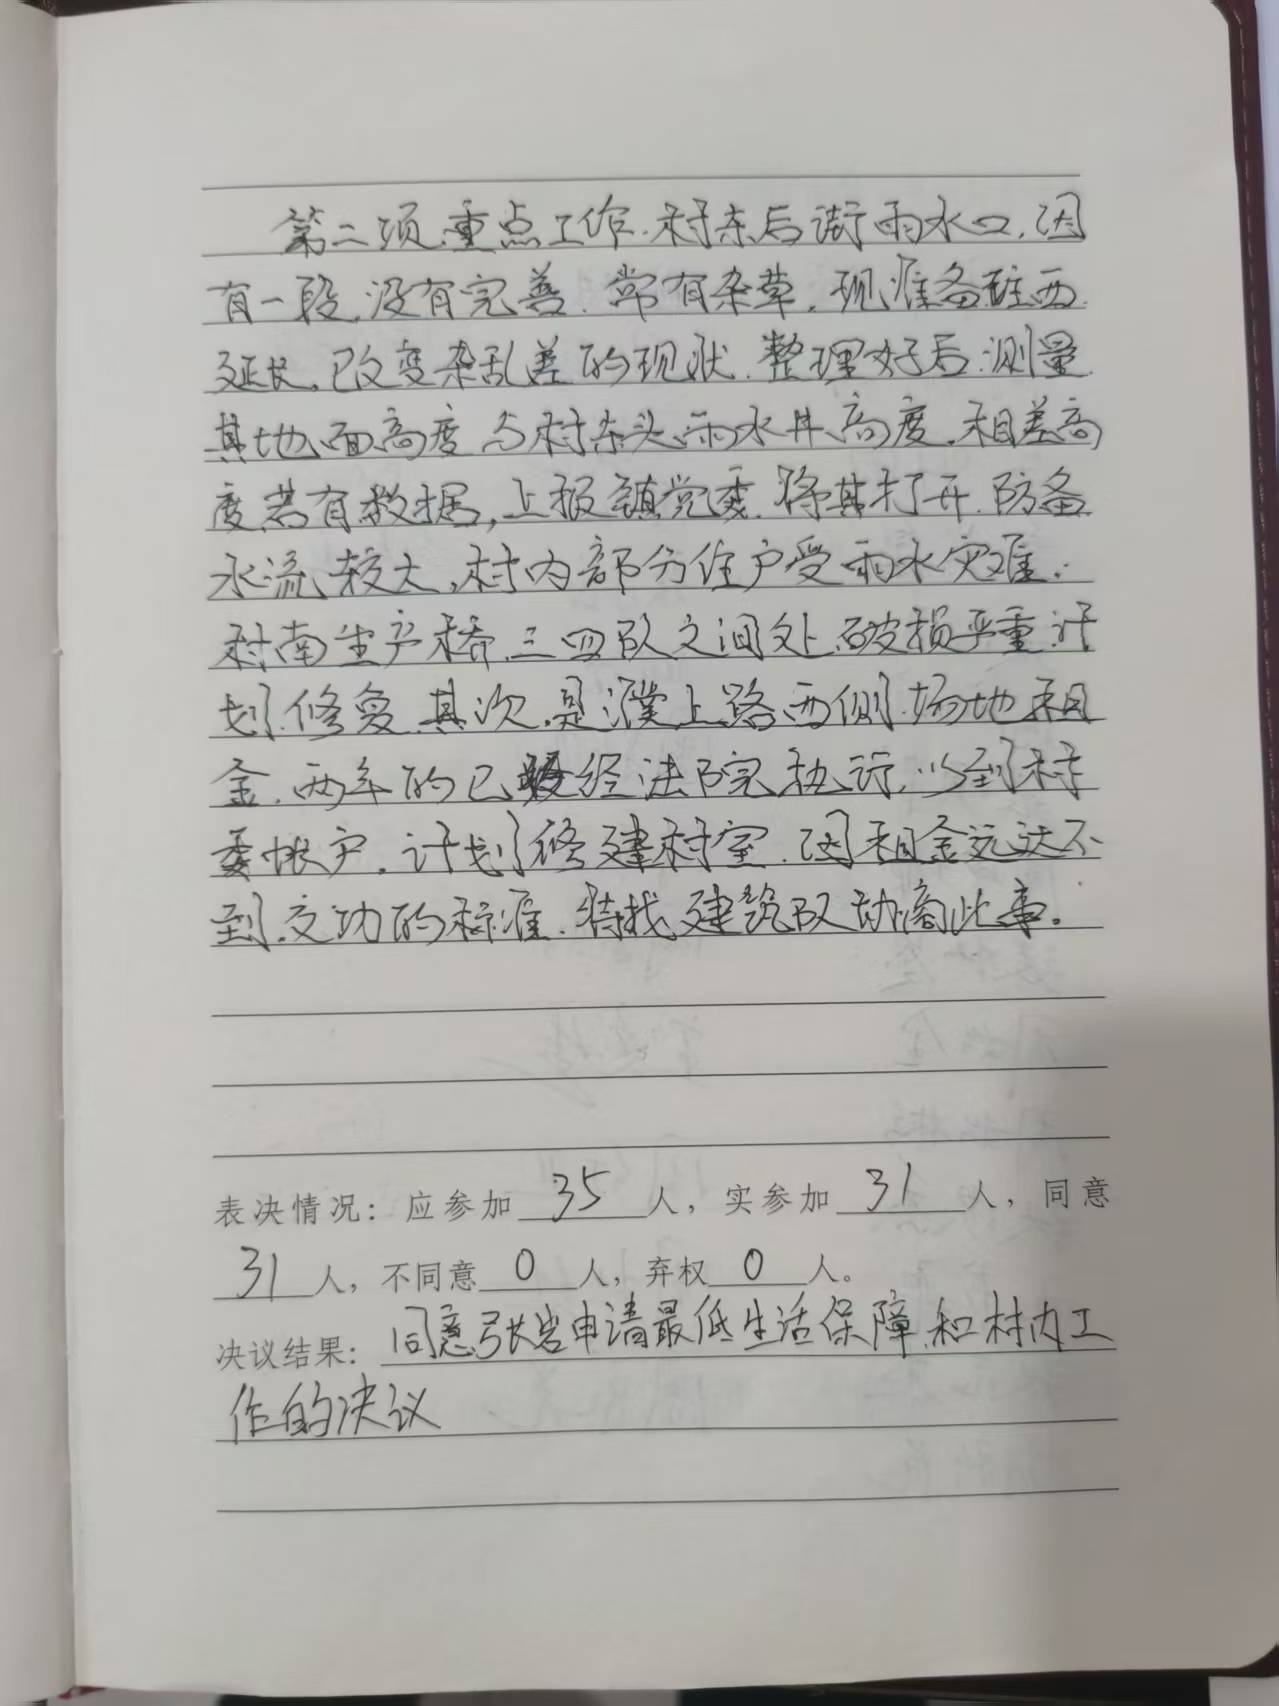 第二项重点工作.村东后街雨水口.因
有一段.没有完善.常有杂草.现准备往西
延长.改变杂乱差的现状.整理好后.测量
其地面高度与村东头雨水井高度.相差高
度若有数据,上报镇党委.将其打开.防备
水流较大,村内部分住户受雨水灾难.
村南生产桥.三四队之间处.破损严重.计
划.修复.其次.是濮上路西侧.场地租
金.两年的已经法院执行.以到村
委帐户.计划修建村室.因租金远达不
到.交功的标准.特找建筑队协商此事.
表决情况:应参加 35 人,实参加 31 人,同意
31 人,不同意 0 人,弃权 0 人。
决议结果:同意张岩申请最低生活保障和村内工
作的决议